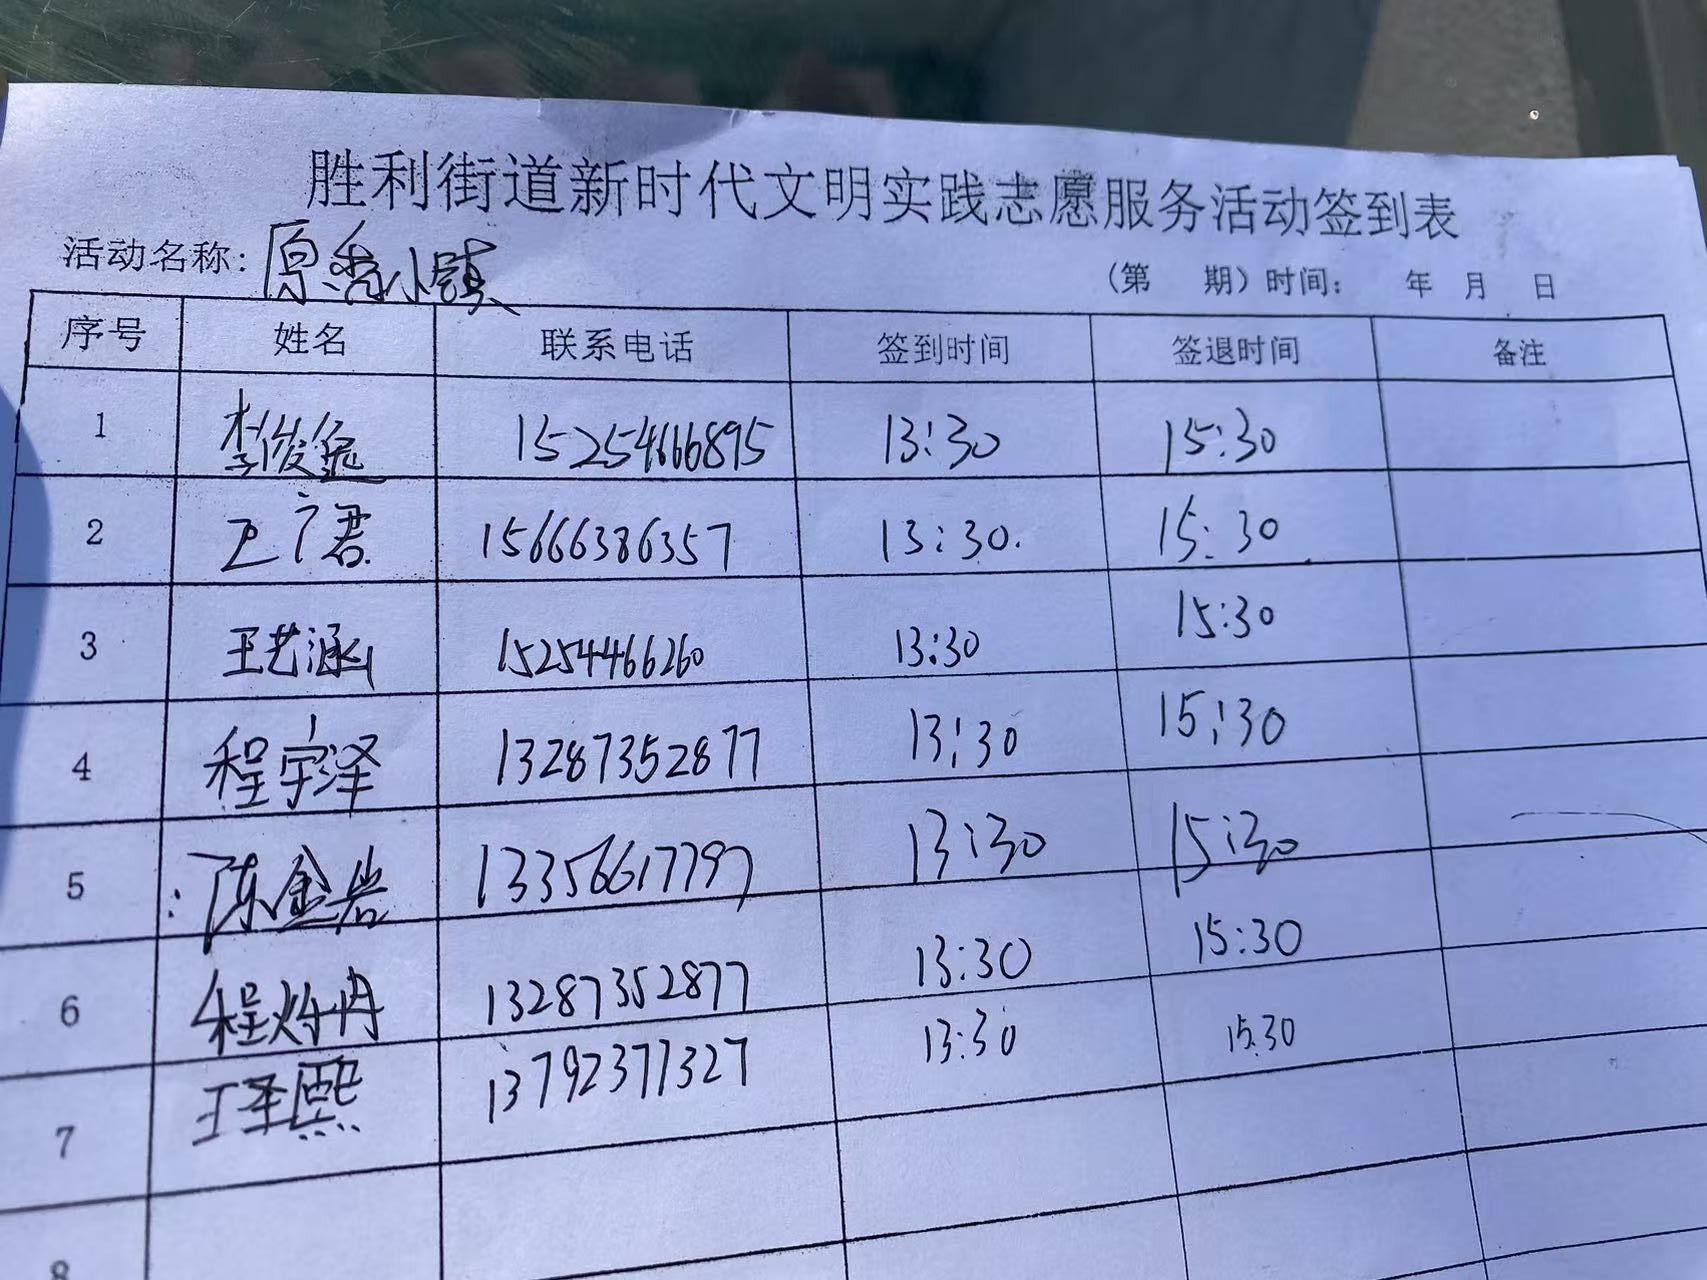 胜利街道新时代文明实践志愿服务活动签到表
活动名称:原香小镇
(第 期)时间: 年 月 日
序号 姓名 联系电话 签到时间 签退时间 备注
1 李俊逸 15254666895 13:30 15:30
2 王广君 15666386357 13:30. 15:30
3 王艺涵 15254466260 13:30 15:30
4 程宇泽 13287352877 13:30 15:30
5 陈金岩 13356617797 13:30 15:30
6 程 冉 13287352877 13:30 15:30
7 王圣熙 13792377327 13:30 15:30
8